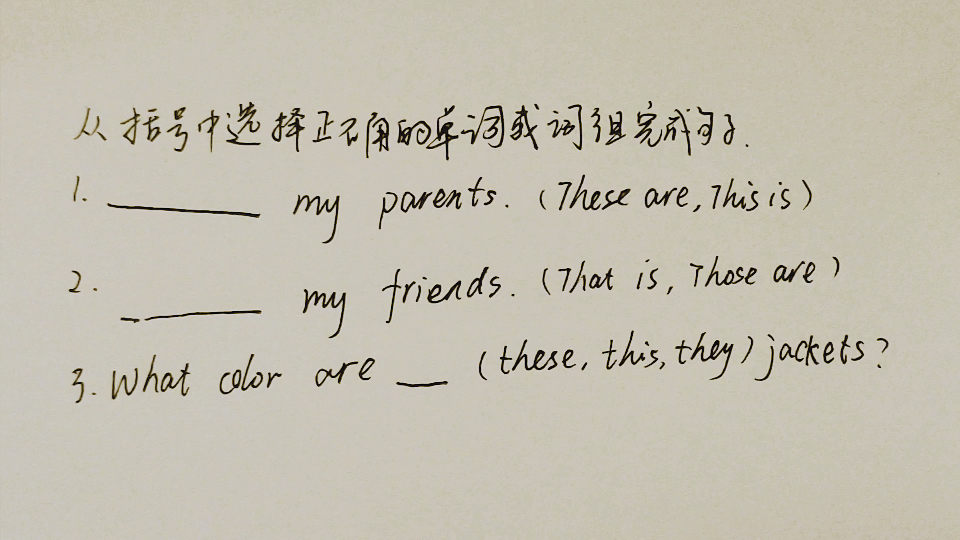 从括号中选择正确的单词或词组完成句子.
1. ______ my parents. (These are, This is)
2. ______ my friends. (That is, Those are)
3. What color are __ (these, this, they) jackets?